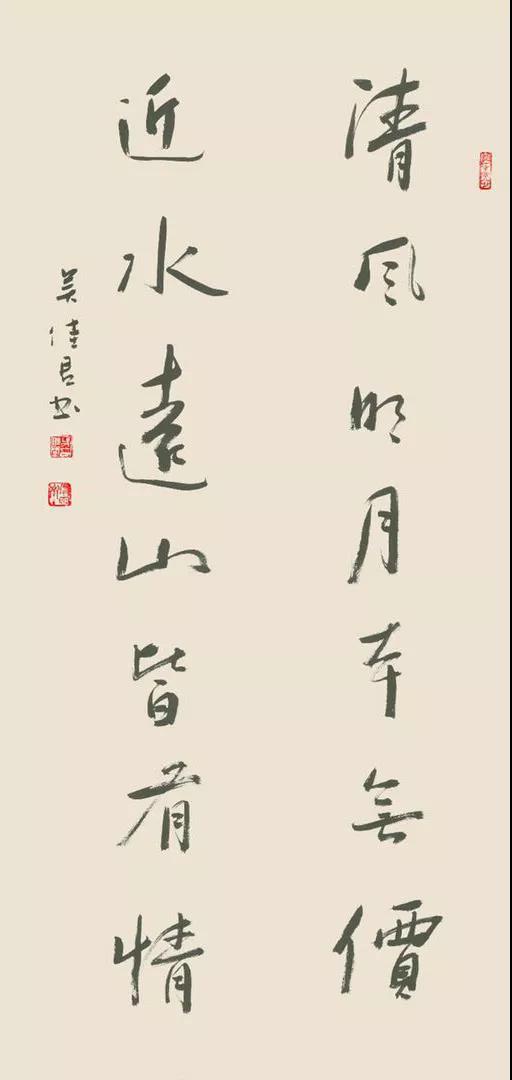 清风明月本無價
近水遠山皆有情
吴佳君书